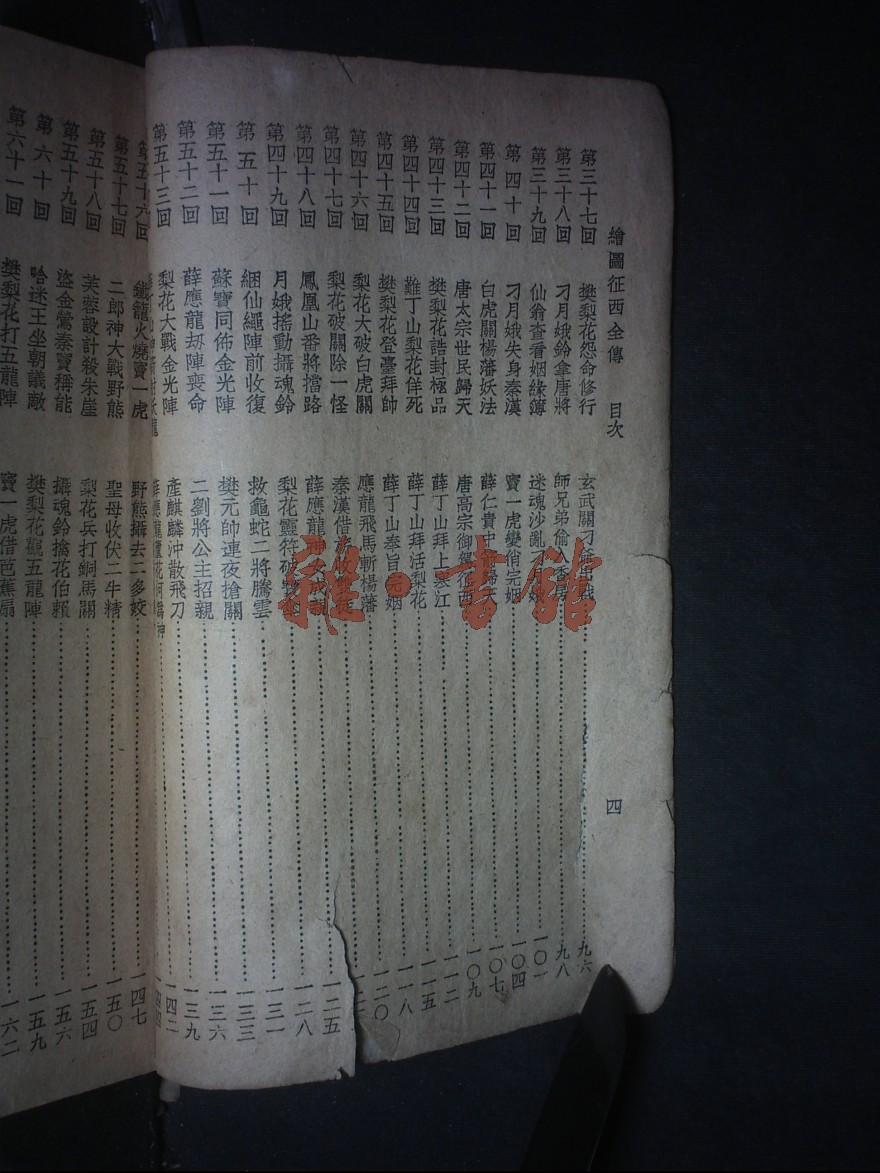 繪圖征西全傳 目次 四
第三十七回 樊梨花怨命修行 玄武關刁 九六
第三十八回 刁月娥鈴拿唐將 師兄弟偷入香房 九八
第三十九回 仙翁查看姻緣簿 迷魂沙亂刁月娥 一〇一
第四十回 刁月娥失身秦漢 竇一虎變俏完姻 一〇四
第四十一回 白虎關楊藩妖法 薛仁貴中 一〇七
第四十二回 唐太宗世民歸天 唐高宗御駕征西 一〇九
第四十三回 樊梨花誥封極品 薛丁山拜上寒江 一一二
第四十四回 難丁山梨花佯死 薛丁山拜活梨花 一一五
第四十五回 樊梨花登臺拜帥 薛丁山奉旨完姻 一一八
第四十六回 梨花大破白虎關 應龍飛馬斬楊藩 一二〇
第四十七回 梨花破關除一怪 秦漢借
第四十八回 鳳凰山番將擋路 薛應龍神 一二五
第四十九回 月娥搖動攝魂鈴 梨花靈符破 一二八
第五十回 綑仙繩陣前收復 救龜蛇二將騰雲 一三一
第五十一回 蘇寶同佈金光陣 樊元帥連夜搶關 一三三
第五十二回 薛應龍刼陣喪命 二劉將公主招親 一三六
第五十三回 梨花大戰金光陣 產麒麟沖散飛刀 一三九
一四二
第五十六回 鐵龍火燒竇一虎 野熊攝去二多姣 一四七
第五十七回 二郎神大戰野熊 聖母收伏二牛精 一五〇
第五十八回 芙蓉設計殺朱崖 梨花兵打銅馬關 一五四
第五十九回 盜金鶯秦竇稱能 攝魂鈴擒花伯賴 一五六
第六十回 哈迷王坐朝議敵 樊梨花觀五龍陣 一五九
第六十一回 樊梨花打五龍陣 竇一虎借芭蕉扇 一六二
雜·書館